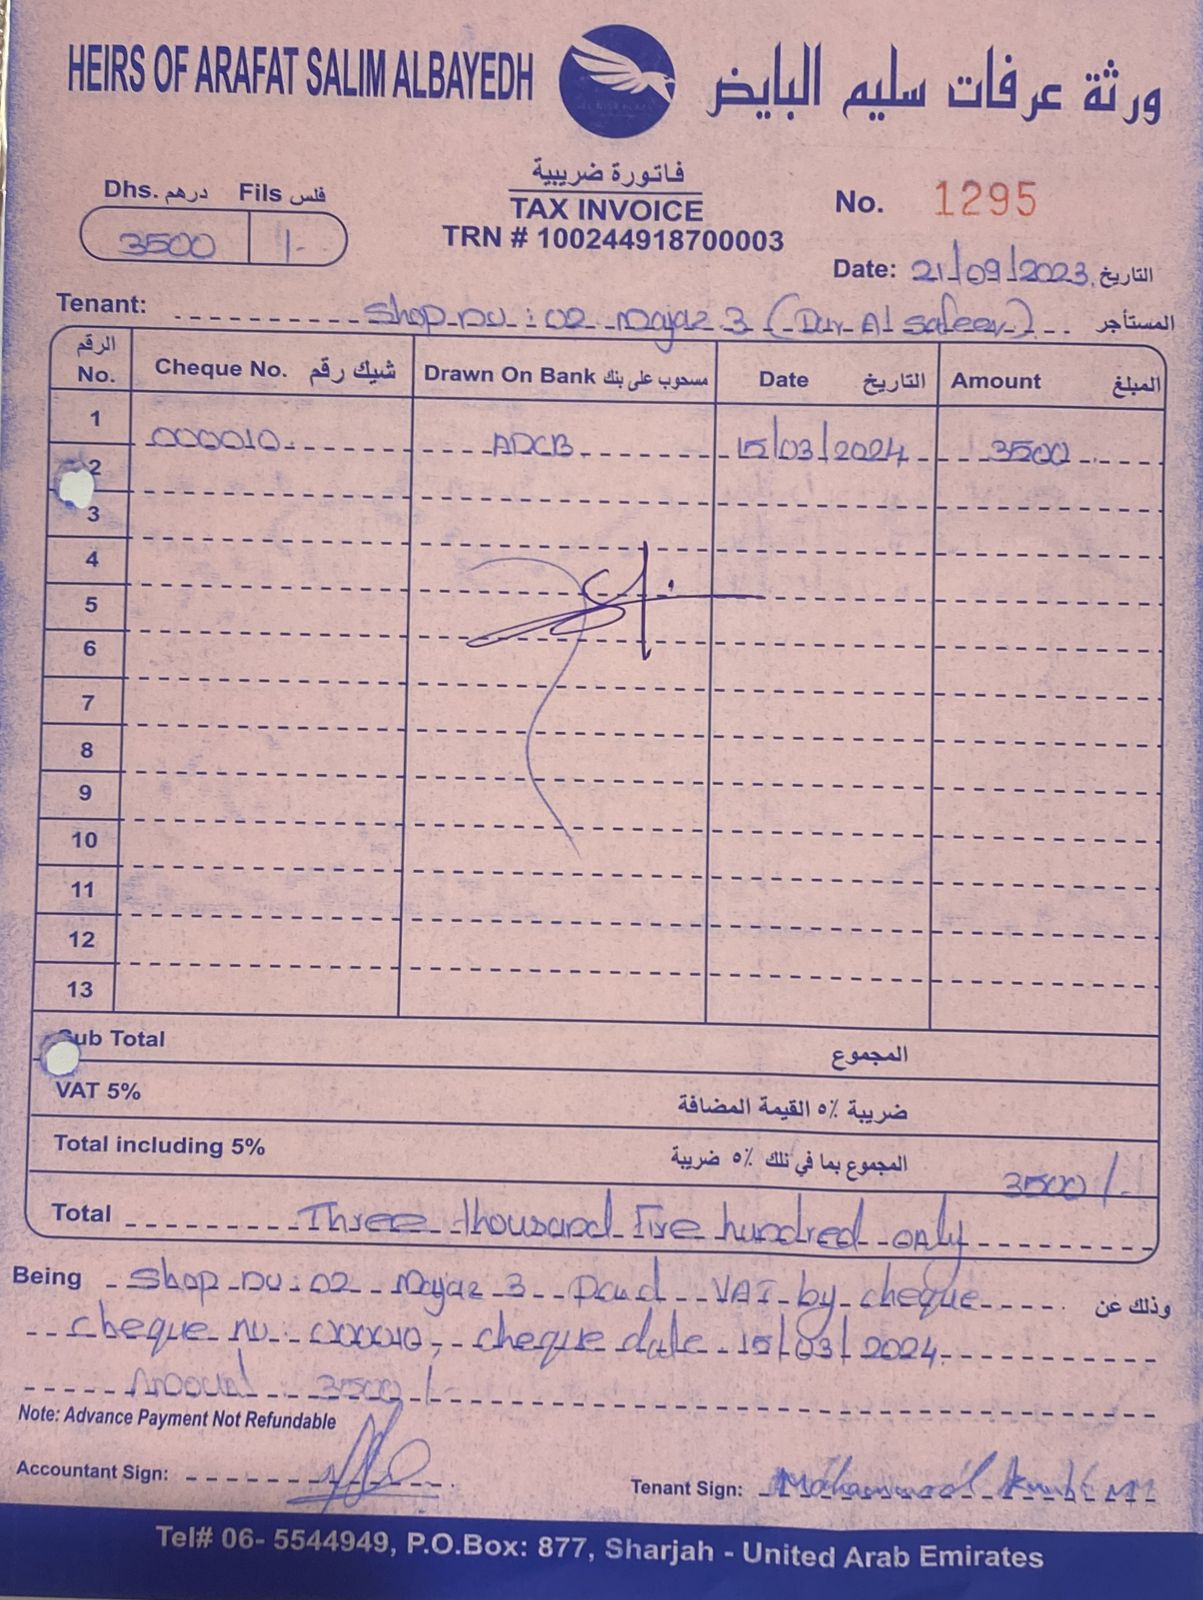 HEIRS OF ARAFAT SALIM ALBAYEDH
ورثة عرفات سليم البايض
فاتورة ضريبية
TAX INVOICE
TRN # 100244918700003
Dhs. درهم Fils فلس
3500 /-
No. 1295
Date: 21/09/2023 التاريخ
Tenant: Shop no: 02 Majaz 3 (Dar Al Safeer) المستأجر
الرقم No. Cheque No. شيك رقم Drawn On Bank مسحوب على بنك Date التاريخ Amount المبلغ
1 000010 ADCB 15/03/2024 3500
2
3
4
5
6
7
8
9
10
11
12
13
Sub Total المجموع
VAT 5% ضريبة ٥٪ القيمة المضافة
Total including 5% المجموع بما في تلك ٥٪ ضريبة 3500/-
Total Three thousand Five hundred only
Being Shop no: 02 Majaz 3 Paid VAT by cheque وذلك عن
cheque no: 000010, cheque date 15/03/2024
Amount 3500/-
Note: Advance Payment Not Refundable
Accountant Sign:
Tenant Sign: Mohammad
Tel# 06- 5544949, P.O.Box: 877, Sharjah - United Arab Emirates